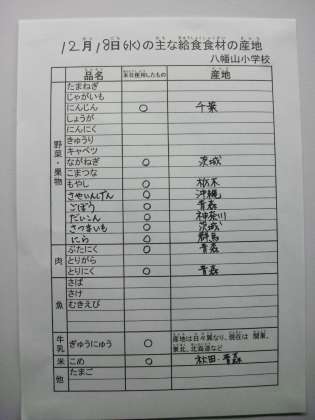 12月18日(水)の主な給食食材の産地
八幡山小学校
品名 本日使用したもの 産地
野菜・果物
たまねぎ
じゃがいも
にんじん ○ 千葉
しょうが
にんにく
きゅうり
キャベツ
ながねぎ ○ 茨城
こまつな
もやし ○ 栃木
さやいんげん ○ 沖縄
ごぼう ○ 青森
だいこん ○ 神奈川
さつまいも ○ 茨城
にら ○ 群馬
肉
ぶたにく ○ 青森
とりがら
とりにく ○ 青森
魚
さば
さけ
むきえび
牛乳 ぎゅうにゅう ○ 産地は日々異なり、現在は 関東、東北、北海道など
米 こめ ○ 秋田・青森
他 たまご